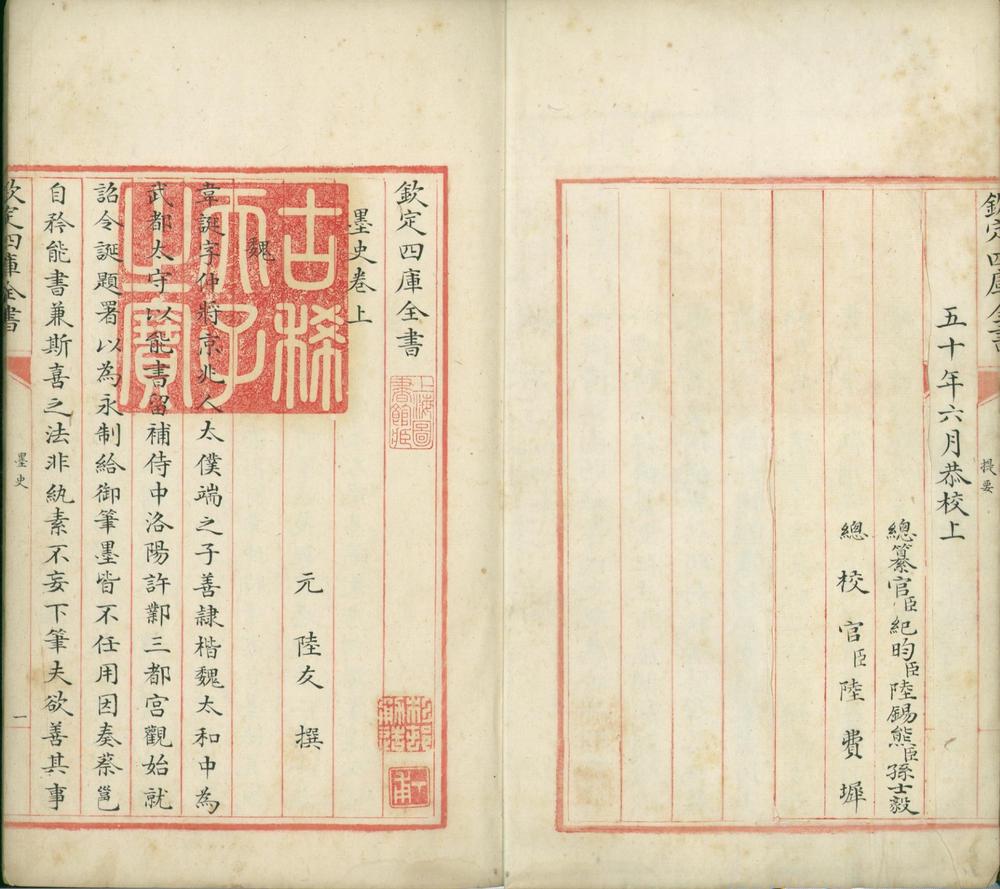 欽定四庫全書
提要
五十年六月恭校上
總纂官臣紀昀臣陸錫熊臣孫士毅
總校官臣陸費墀
欽定四庫全書
上海圖書館藏
墨史卷上
古稀天子之寶
元陸友撰
魏
韋誕字仲將京兆人太僕端之子善隷楷魏太和中為
武都太守以能書留補侍中洛陽許鄴三都宮觀始就
詔令誕題署以為永制給御筆墨皆不任用因奏蔡邕
自矜能書兼斯喜之法非紈素不妄下筆夫欲善其事
欽定四庫全書
墨史
一